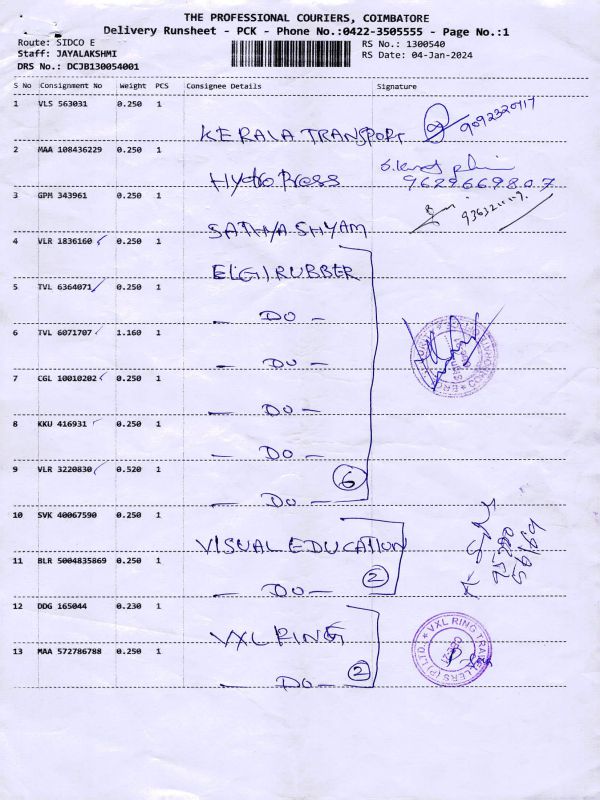 THE PROFESSIONAL COURIERS, COIMBATORE
Delivery Runsheet - PCK - Phone No.:0422-3505555 - Page No.:1
Route: SIDCO E
RS No.: 1300540
Staff: JAYALAKSHMI
RS Date: 04-Jan-2024
DRS No.: DCJB130054001
S No Consignment No Weight PCS Consignee Details Signature
1 VLS 563031 0.250 1
KERALA TRANSPORT
2 MAA 108436229 0.250 1
Hydro Press 9629669807
3 GPM 343961 0.250 1
SATHYA SHYAM
4 VLR 1836160 0.250 1
ELGI RUBBER
5 TVL 6364071 0.250 1
- DO -
6 TVL 6071707 1.160 1
- DO -
7 CGL 10010202 0.250 1
- DO -
8 KKU 416931 0.250 1
- DO -
9 VLR 3220830 0.520 1
6
- DO -
10 SVK 40067590 0.250 1
VISUAL EDUCATION
11 BLR 5004835869 0.250 1
2
- DO -
12 DDG 165044 0.230 1
VXL RING
VXL RING TRAVELLERS (P) LTD.
13 MAA 572786788 0.250 1
2
- DO -